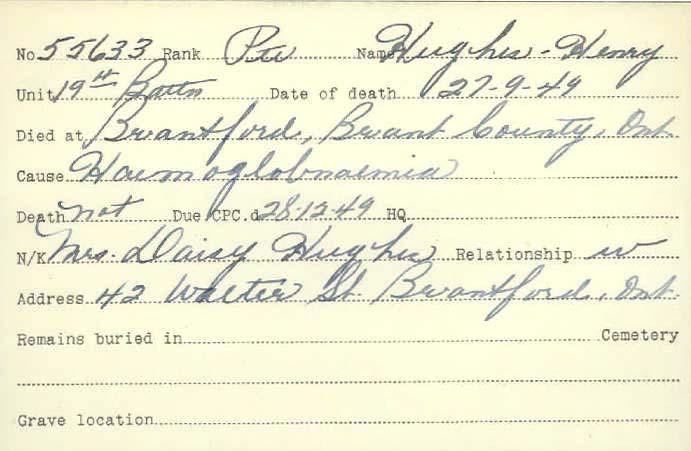 No 55633 Rank Pte Name Hughes - Henry
Unit 19th Battn Date of death 27-9-49
Died at Brantford, Brant County, Ont.
Cause Haemoglobnaemia
Death not Due CPC.d 28-12-49 HQ
N/K Mrs. Daisy Hughes Relationship w
Address 42 Walter St. Brantford, Ont.
Remains buried in Cemetery
Grave location